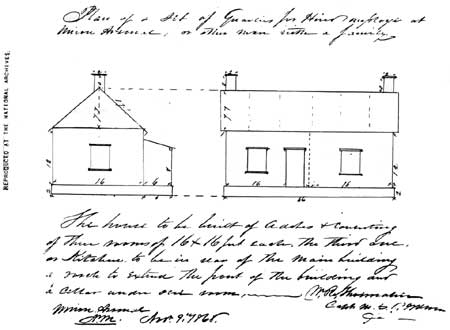 Plan of a Set of Quarters for Hired employe at
Union Arsenal, or other man with a family.
REPRODUCED AT THE NATIONAL ARCHIVES.
16
6
16
16
The house to be built of Adobes & consisting
of three rooms of 16 + 16 feet each. The third one,
or Kitchen to be in rear of the main building
a to extend the front of the building and
a Cellar under one room,
W. R. Shoemaker
Capt
Union Arsenal
N.M. Nov.